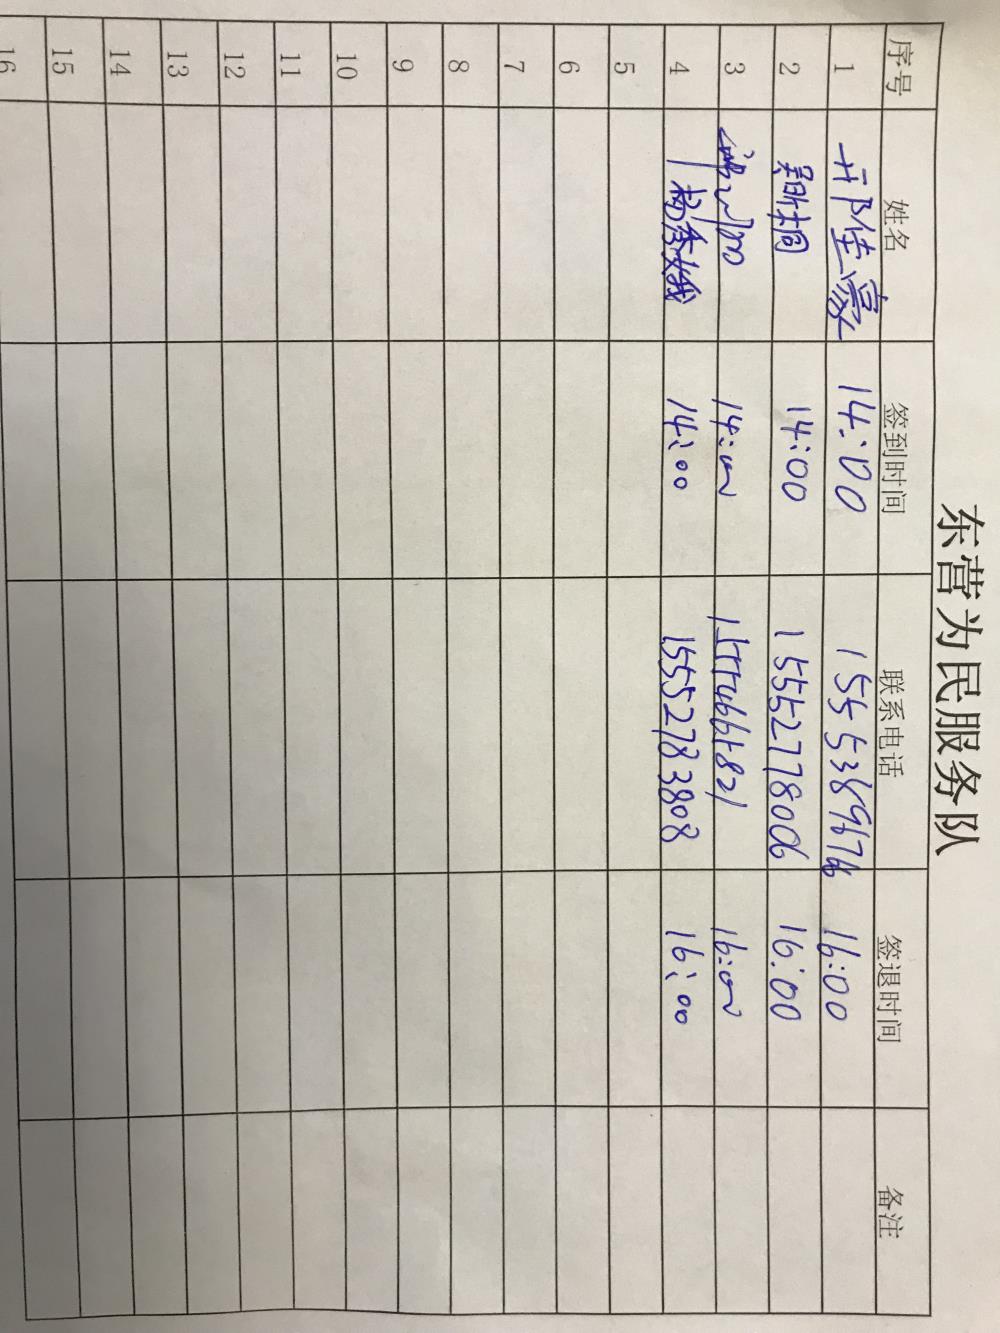 东营为民服务队
序号 姓名 签到时间 联系电话 签退时间 备注
1 14:00 1555389676 16:00
2 14:00 15552778006 16:00
3 14:00 16:00
4 杨秀娥 14:00 15552783808 16:00
5
6
7
8
9
10
11
12
13
14
15
16